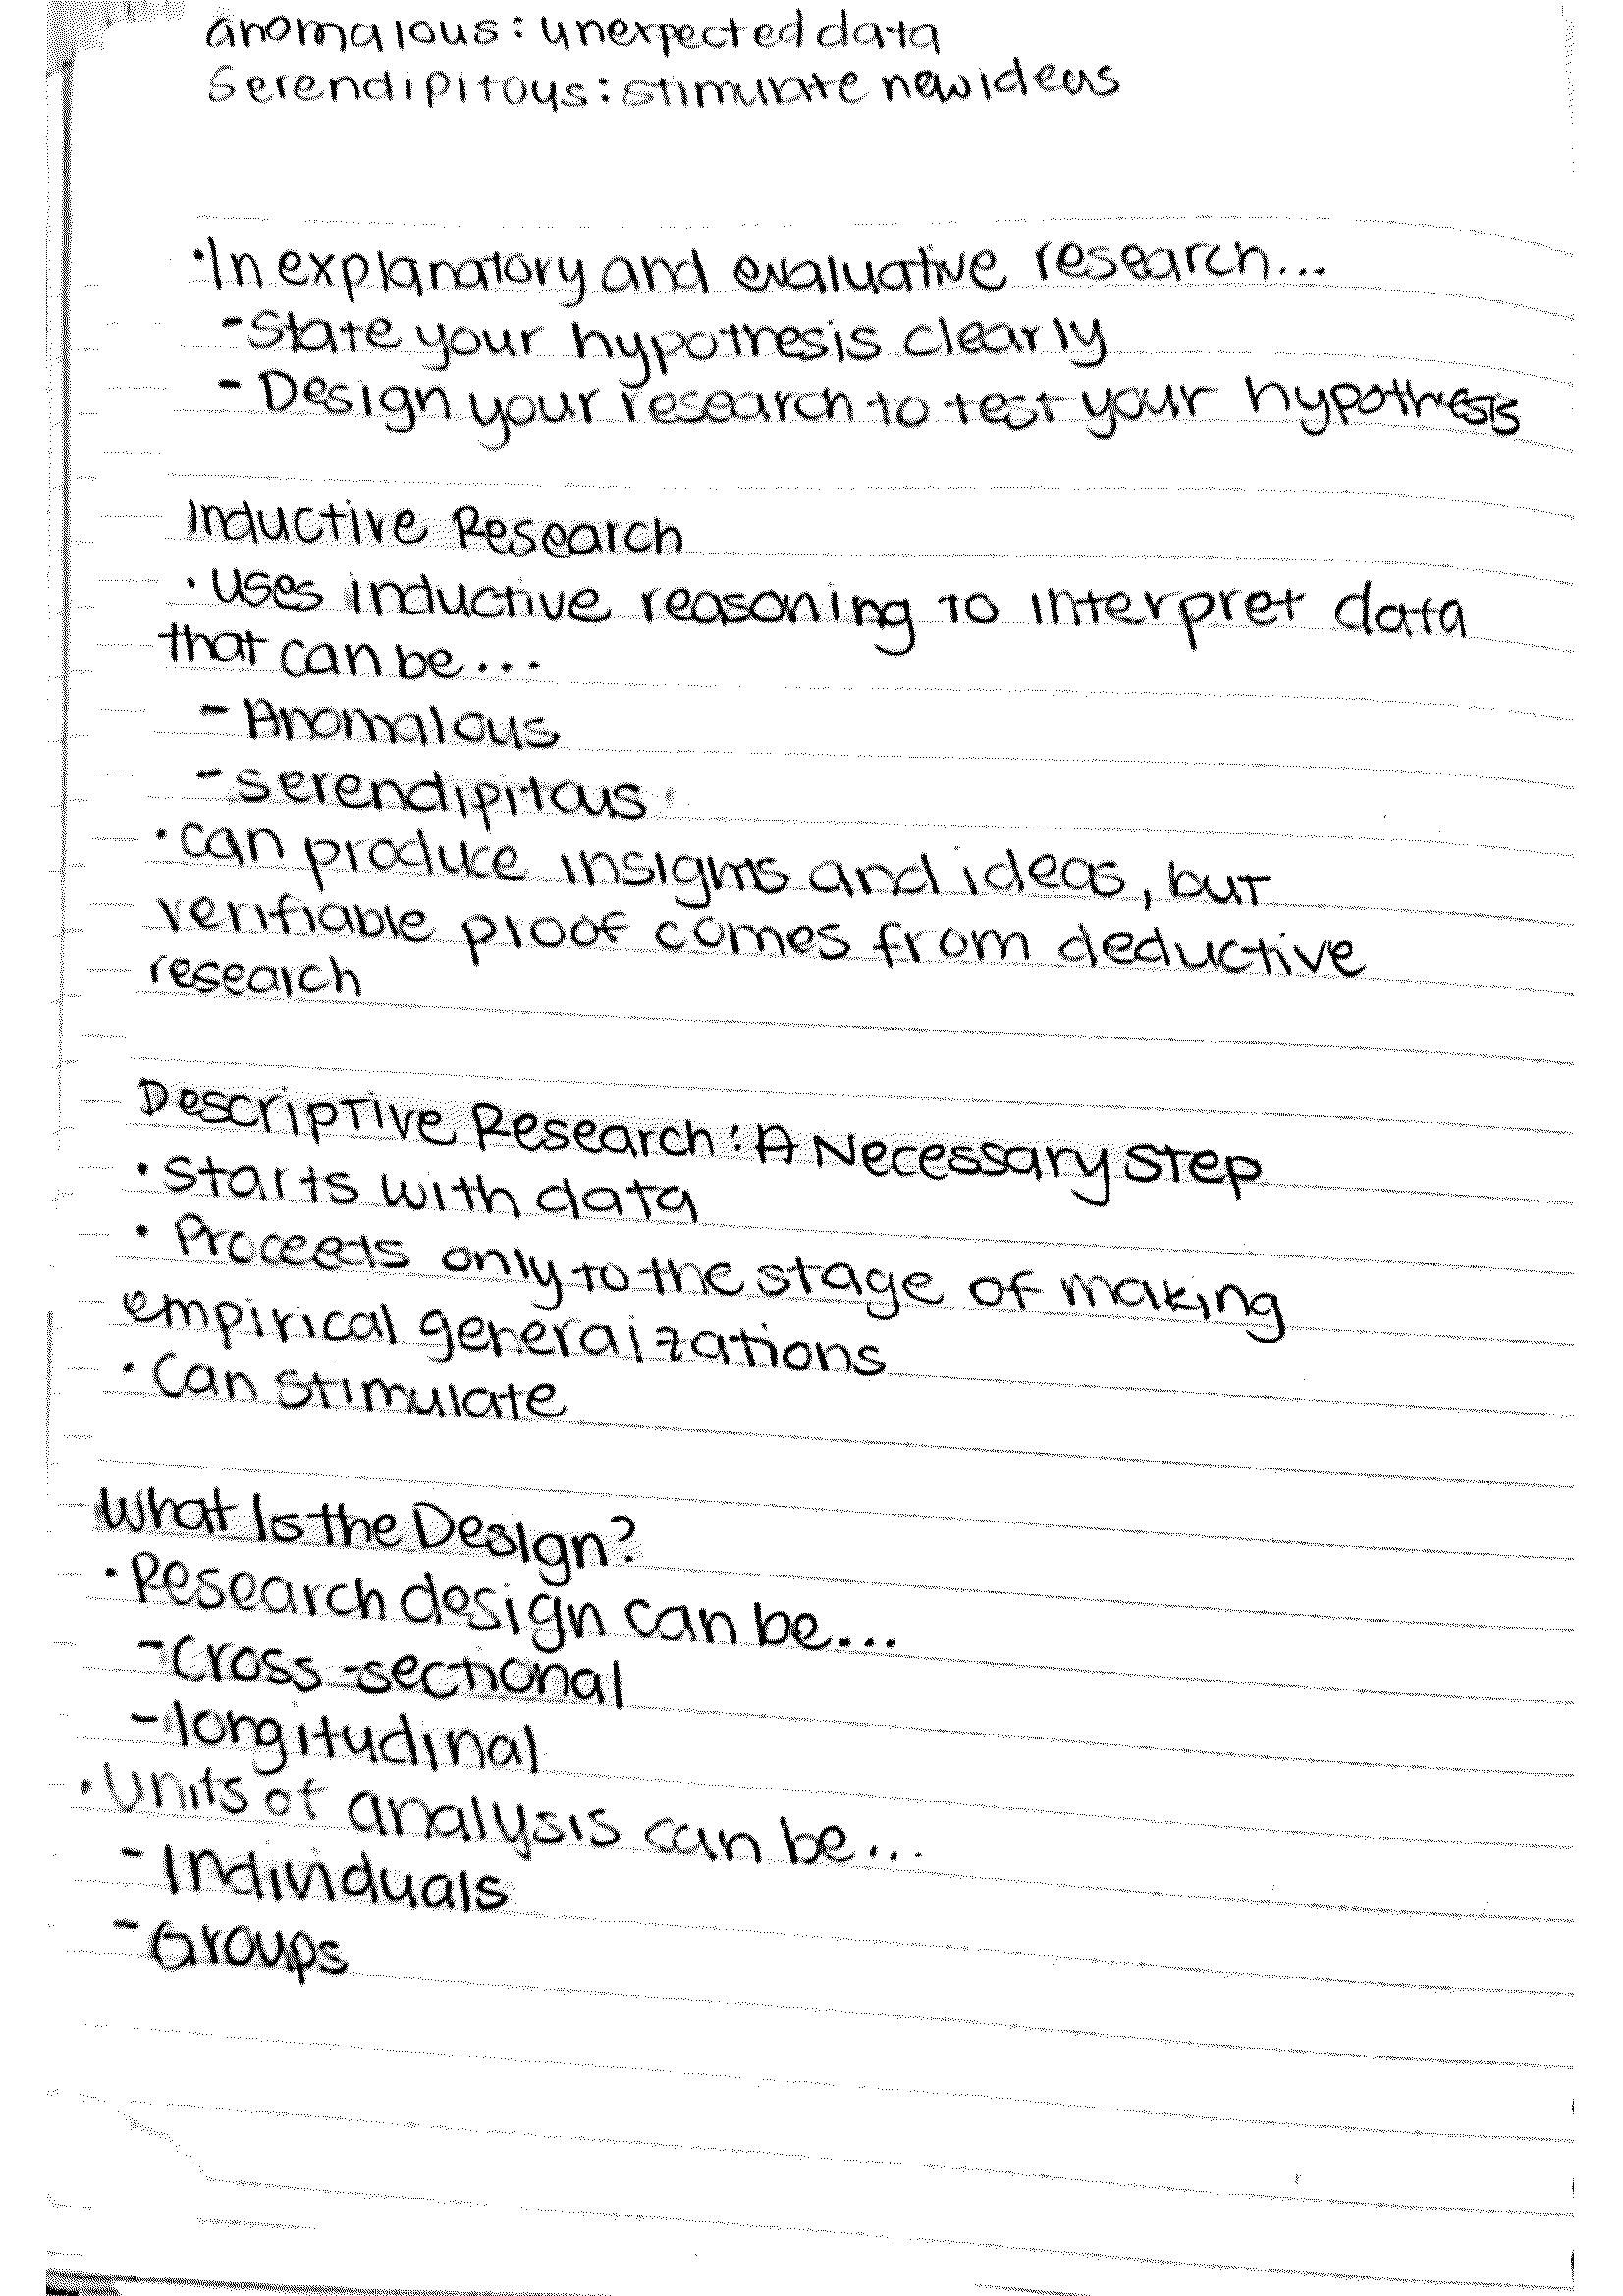 anomalous: unexpected data
Serendipitous: stimulate new ideas
• In explanatory and evaluative research...
- State your hypothesis clearly
- Design your research to test your hypothesis
Inductive Research
• uses inductive reasoning to interpret data
that can be...
- Anomalous
- serendipitous
• can produce insights and ideas, but
verifiable proof comes from deductive
research
Descriptive Research: A Necessary Step
• Starts with data
• Proceeds only to the stage of making
empirical generalizations
• Can stimulate
What Is the Design?
• Research design can be...
- Cross-sectional
- longitudinal
• Units of analysis can be...
- Individuals
- Groups